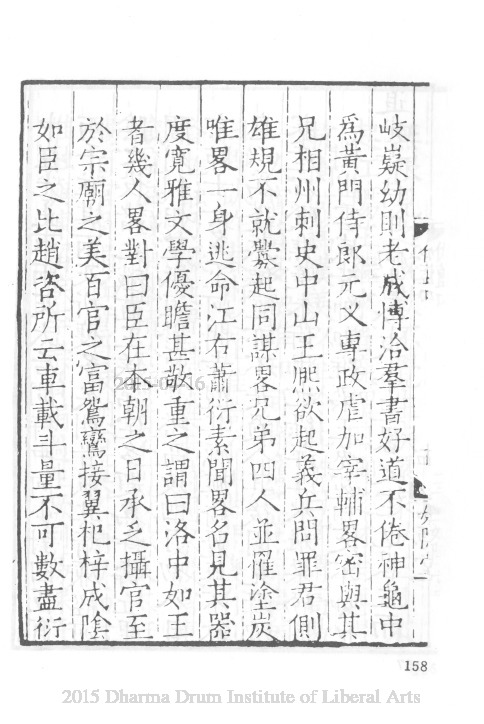 岐嶷幼則老成博洽羣書好道不倦神龜中
爲黃門侍郎元乂專政虐加宰輔畧密與其
兄相州刺史中山王熈欲起義兵問罪君側
雄規不就釁起同謀畧兄弟四人並罹塗炭
唯畧一身逃命江右蕭衍素聞畧名見其器
度寛雅文學優贍甚敬重之謂曰洛中如王
者幾人畧對曰臣在本朝之日承乏攝官至
於宗廟之美百官之富鴛鸞接翼杞梓成陰
如臣之比趙咨所云車載斗量不可數盡衍
158
2015 Dharma Drum Institute of Liberal Arts